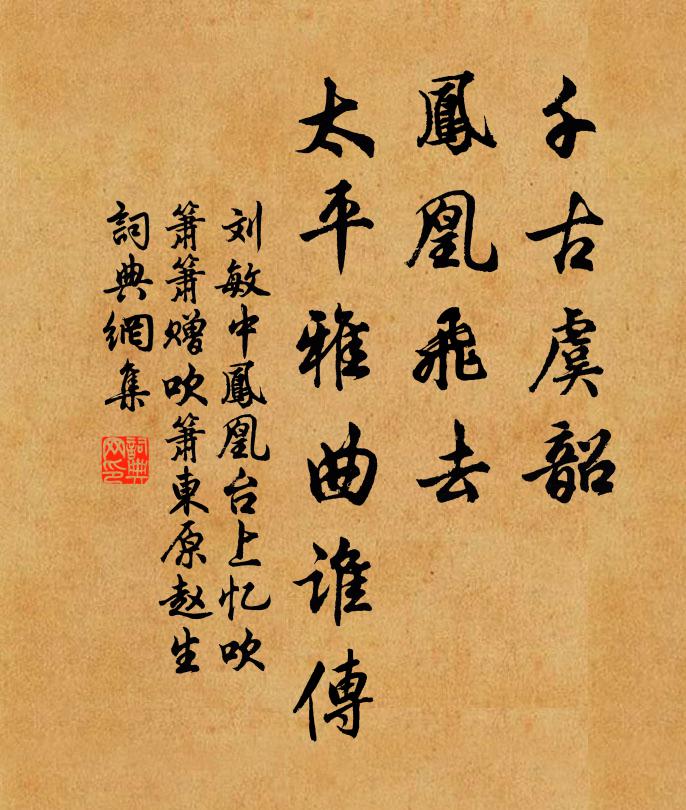 千古虞韶
鳳凰飛去
太平雅曲誰傳
刘敏中鳳凰台上忆吹
簫簫赠吹簫東原赵生
詞典網集
詞典
网印